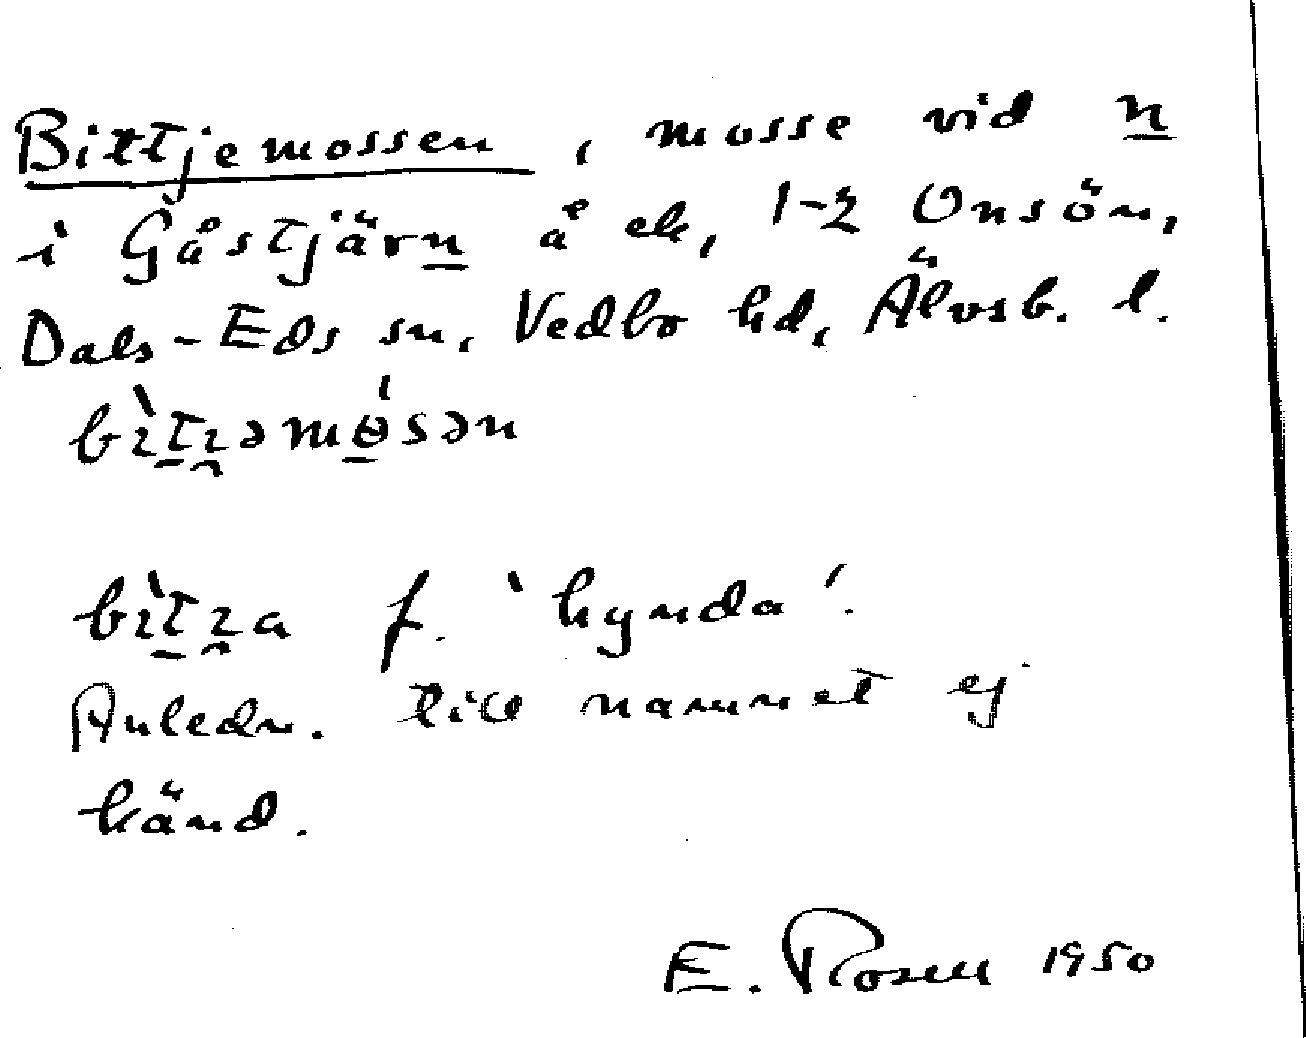 Bittjemossen, mosse vid n
i Gåstjärn å ek, 1-2 Onsön,
Dals-Eds sn, Vedbo hd, Älvsb. l.
bìtɿəmɵ́sən
bìtɿa f. 'hynda'.
Anledn. till namnet ej
känd.
E. Rosen 1950